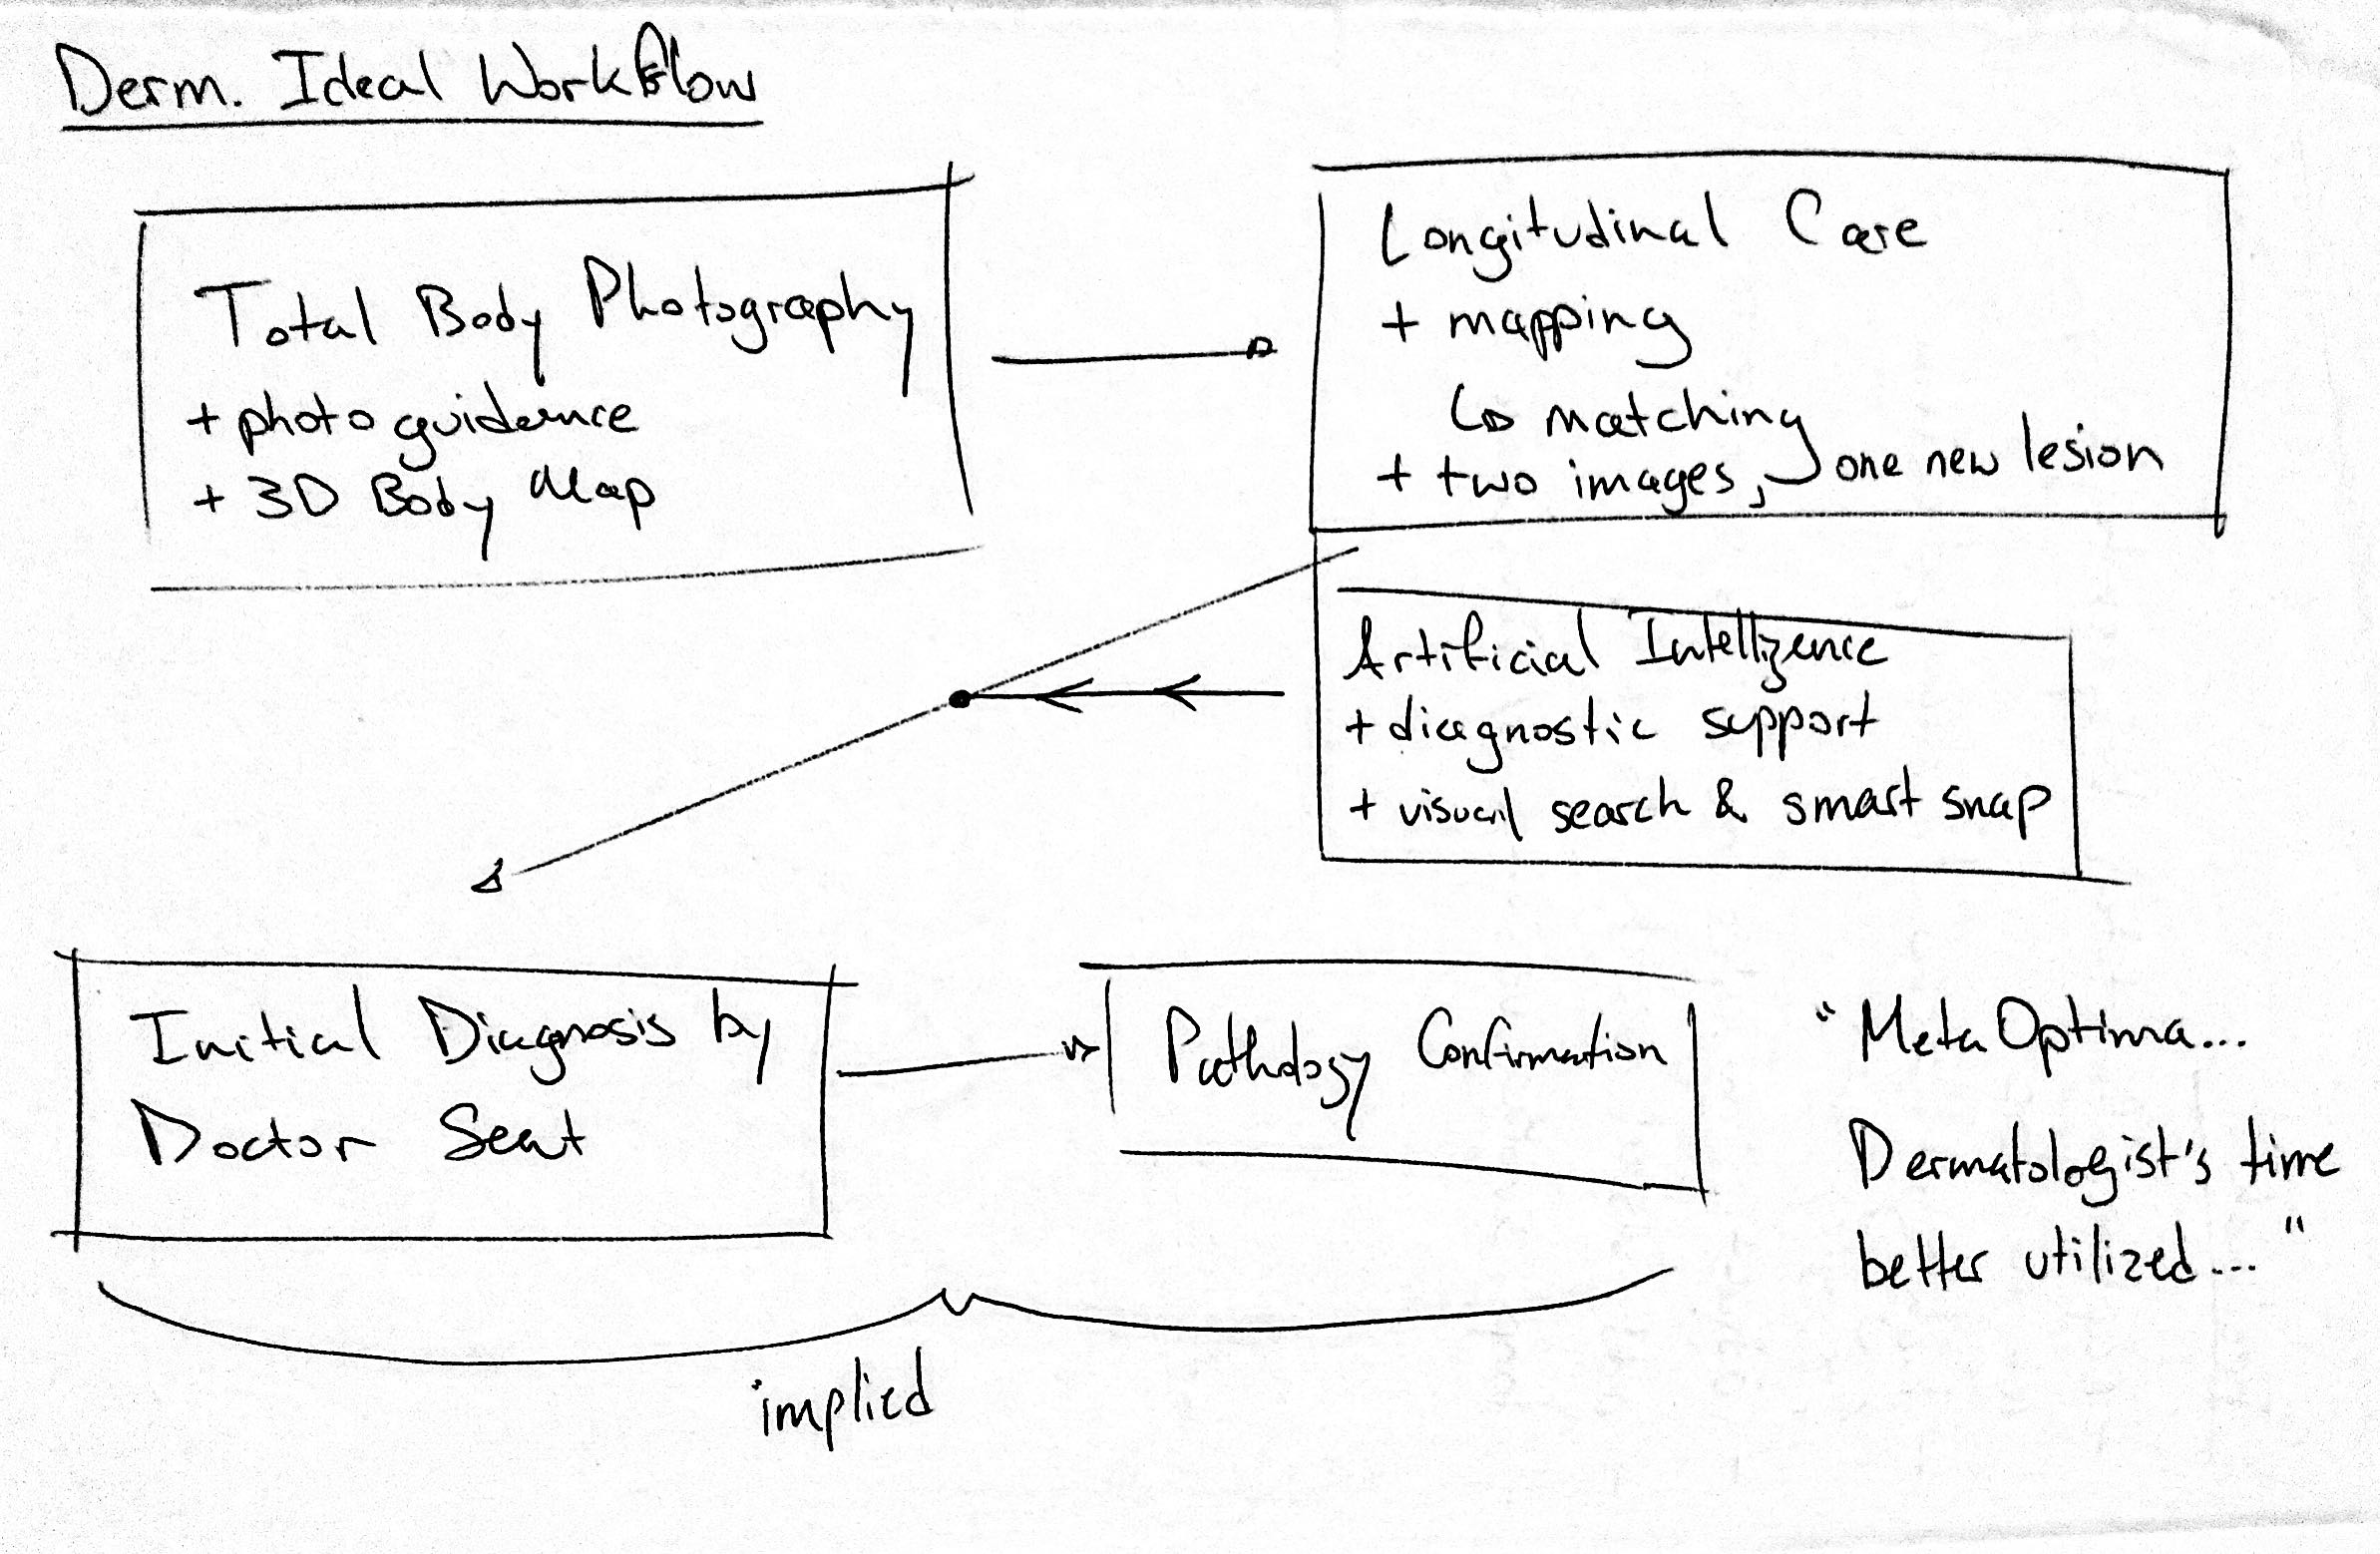 Derm. Ideal Workflow
Total Body Photography
+ photo guidance
+ 3D Body Map
Longitudinal Care
+ mapping
↳ matching
+ two images, one new lesion
Artificial Intelligence
+ diagnostic support
+ visual search & smart snap
Initial Diagnosis by
Doctor Seat
Pathology Confirmation
"MetaOptima...
Dermatologist's time
better utilized..."
implied